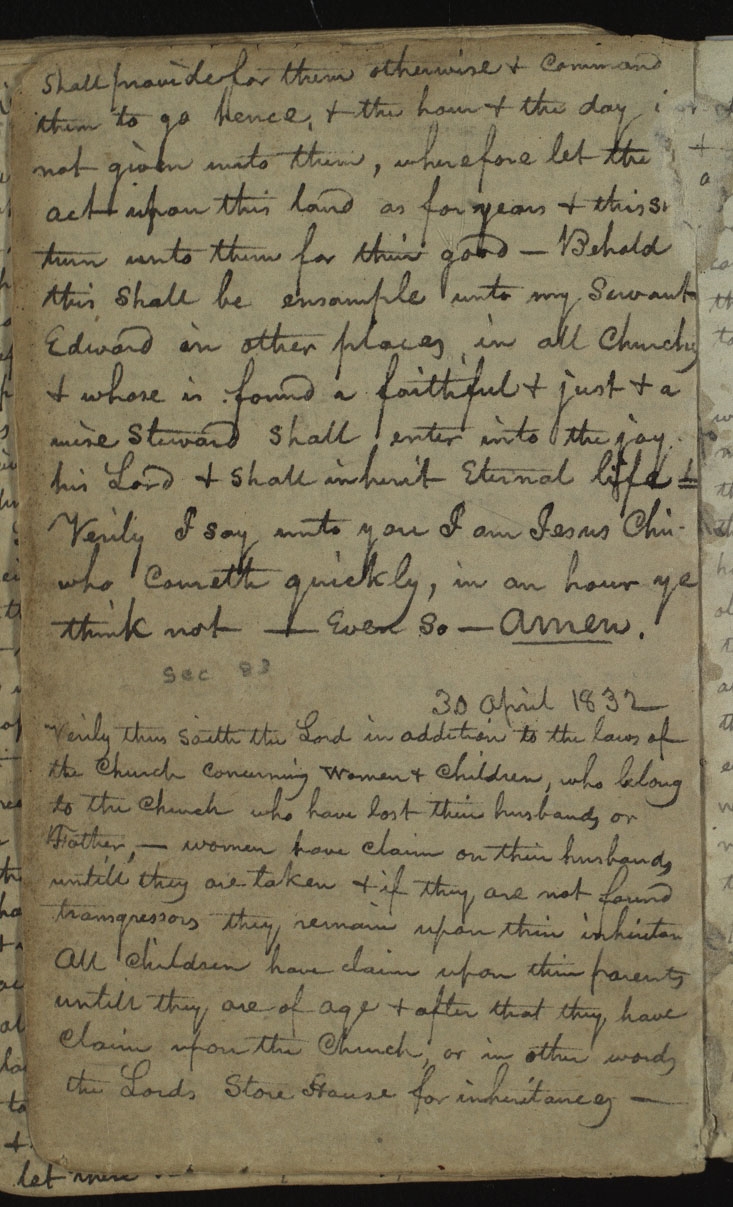 Shall provide for them otherwise & Command
them to go hence, & the hour & the day
not given unto them, wherefore let the
act upon this land as for years & this
turn unto them for their good — Behold
this Shall be ensample unto my Servant
Edward in other places in all Churches
& whose is found a faithful & just & a
wise Steward Shall enter into the joy
his Lord & Shall inherit Eternal life
Verily I say unto you I am Jesus Chri-
who Cometh quickly, in an hour ye
think not — Even So — Amen.
Sec 83
30 April 1832
Verily thus Saith the Lord in addition to the laws of
the Church Concerning Women & Children, who belong
to the Church who have lost their husbands or
Father, — women have claim on their husbands
untill they are taken & if they are not found
transgressors they remain upon their inheritan
All Children have claim upon their parents
untill they are of age & after that they have
Claim upon the Church, or in other words
the Lords Store House for inheritances —
let